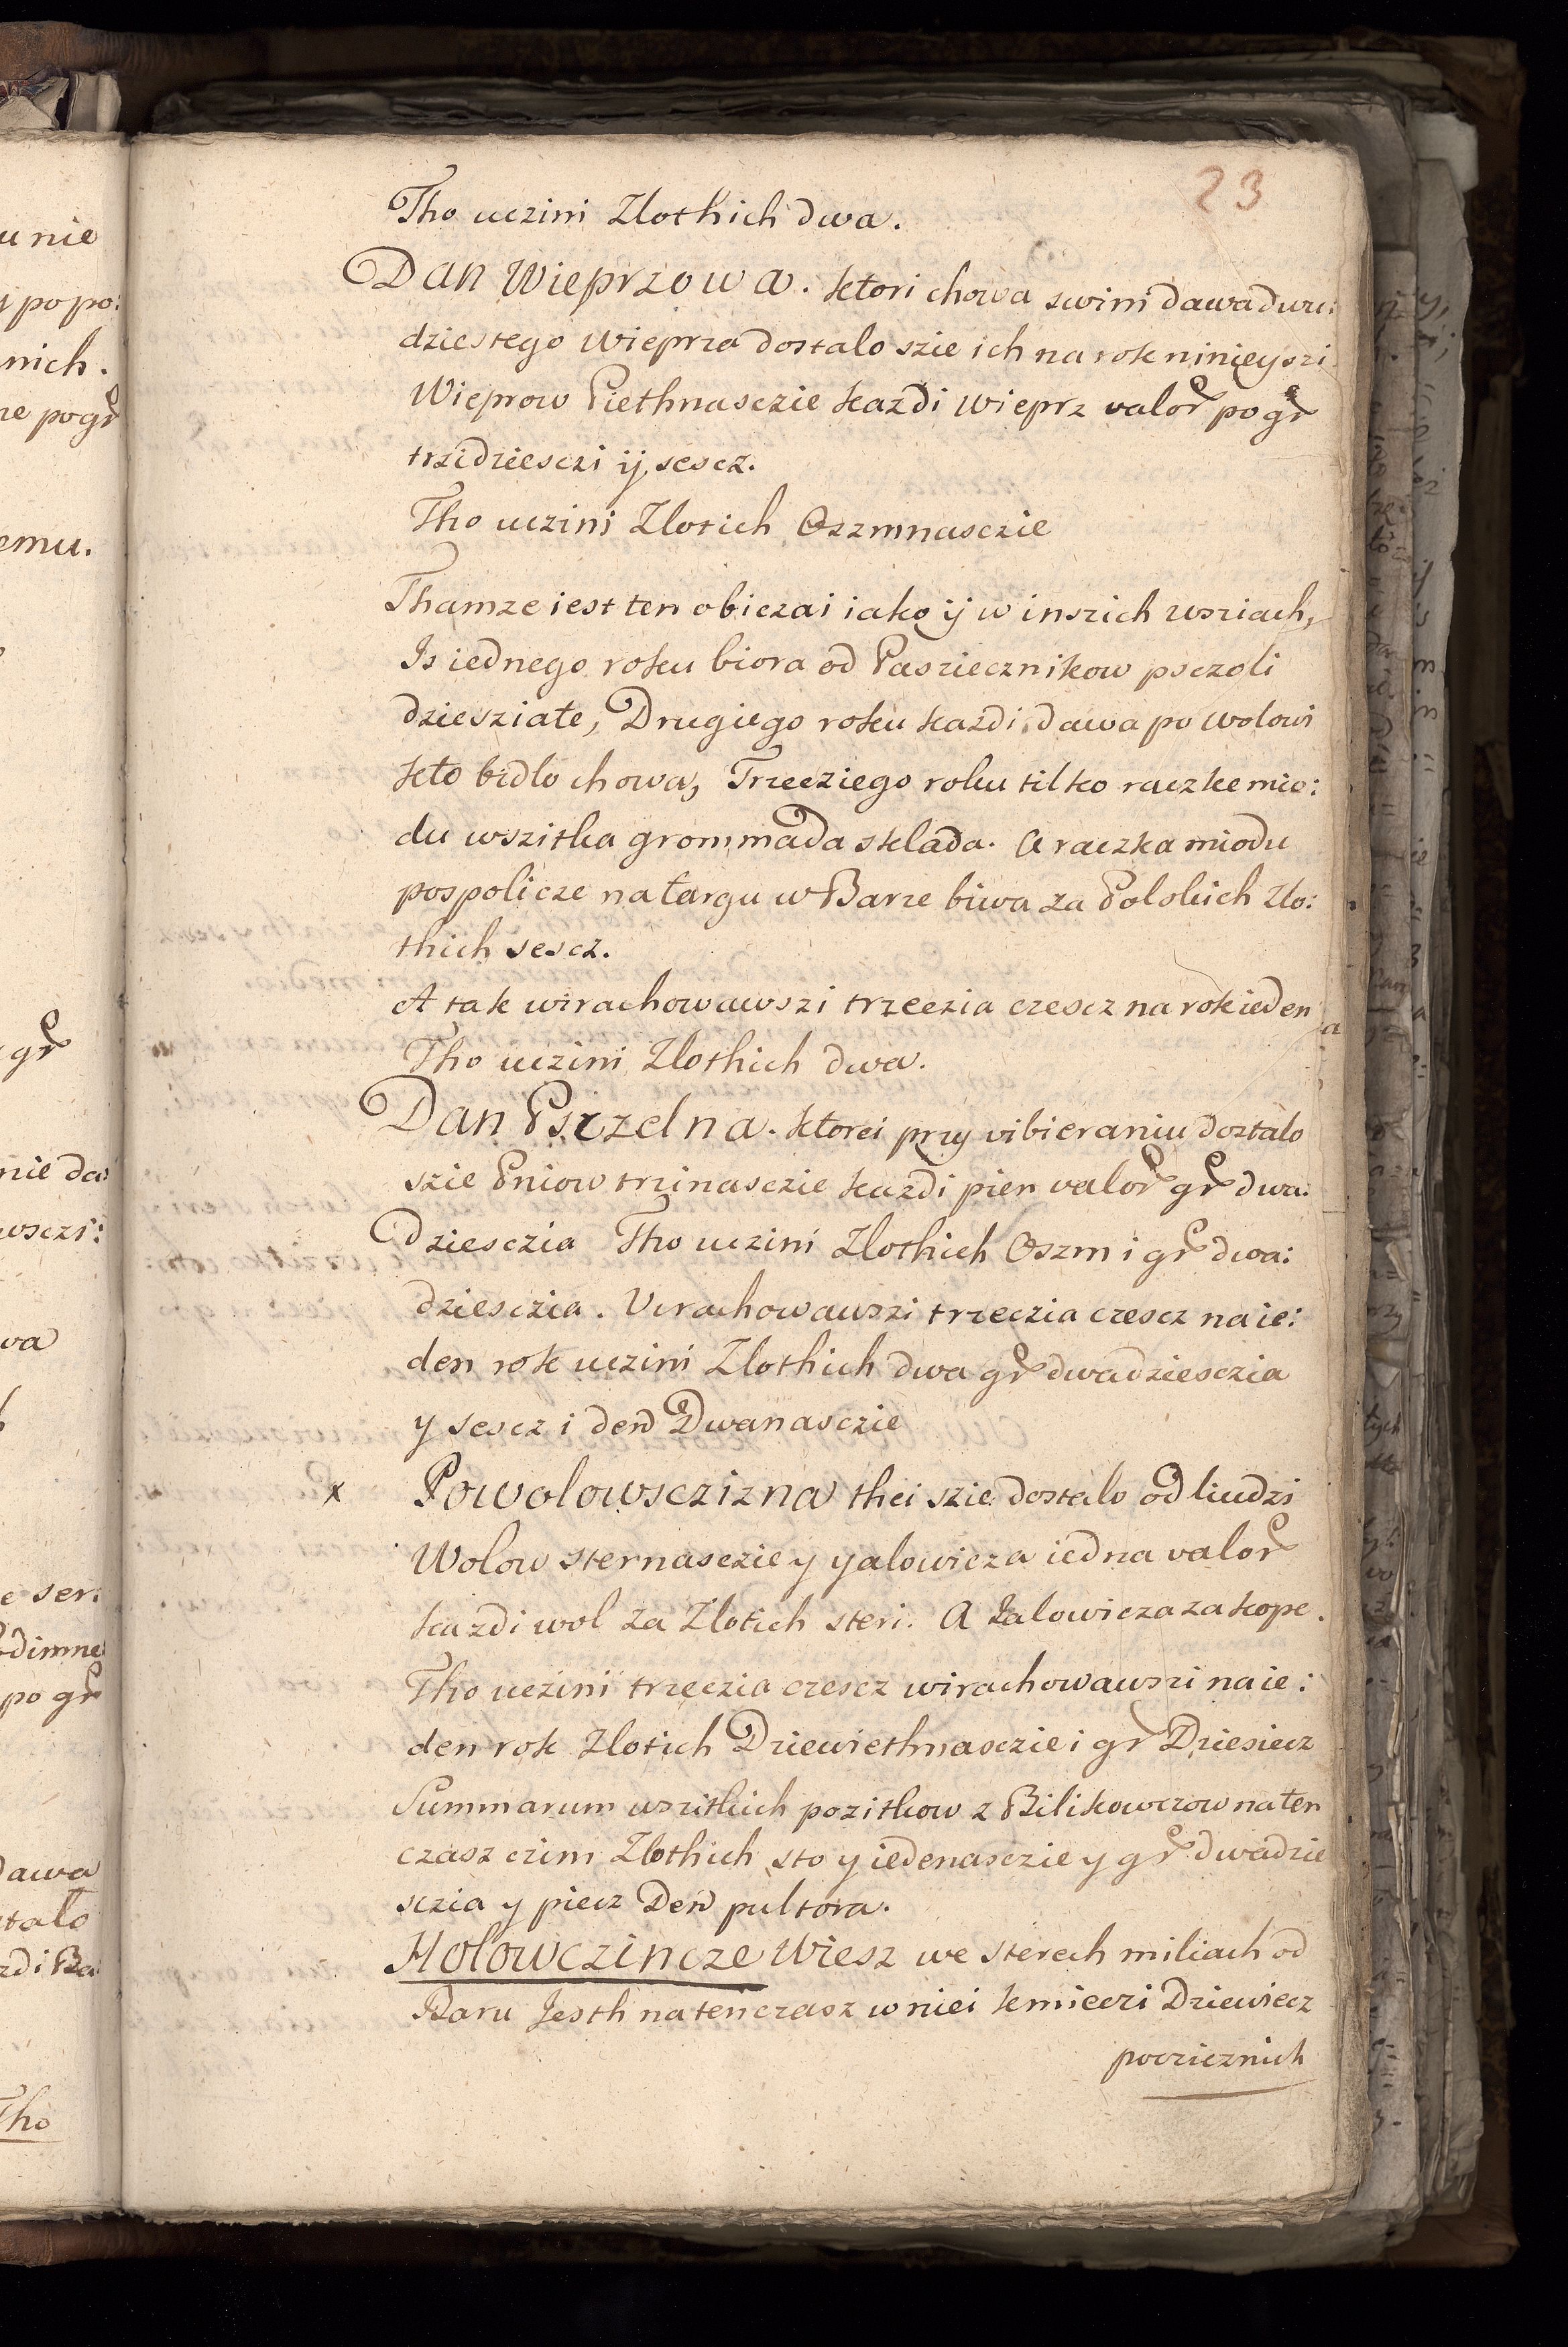 23
Tho uczini Zlothich dwa.
Dan Wieprzowa. ktori chowa swini dawa dwu:
dziestego wieprza dostalo szie ich na rok ninieyszi
Wieprow Piethnasczie kazdi wieprz valor po gr
trzidziesczi ij sescz.
Tho uczini Zlotich Oszmnasczie
Thamze iest ten obiczai iako ij w inszich wsziach,
Is iednego roku biora od Pasziecznikow psczoli
dziesziate, Drugiego roku kazdi dawa po wolowi
kto bidlo chowa, Trzecziego roku tilko raczke mio:
du wszitka grommada sklada. A raczka miodu
pospolicze na targu w Barze biwa za Polskich Zlo:
thich sescz.
A tak wirachowawszi trzeczia czescz na rok ieden
Tho uczini Zlothich dwa.
Dan Psczelna. ktorei przy vibieraniu dostalo
szie Pniow trzinasczie kazdi pien valor gr dwa:
Dziesczia Tho uczini Zlothich Oszm i gr dwa:
dziesczia. Virachowauszi trzeczia czescz na ie:
den rok uczini Zlothich dwa gr dwadziesczia
y sescz i den Dwanasczie
x Powolowsczizna thei szie dostalo od liudzi
Wolow sternasczie y yalowicza iedna valor
kazdi wol za Zlotich steri. A Jalowicza za kope.
Tho uczini trzeczia czescz wirachowawszi na ie:
den rok Zlotich Dziewiethnasczie i gr Dziesiecz
Summarum wszitkich pozitkow z Bilikowczow na ten
czasz czini Zlothich sto y iedenasczie y gr dwadzie
sczia y piecz Den pultora.
Holowczincze Wiesz we sterech miliach od
Baru Jesth na ten czasz w niei kmieczi Dziewiecz
poczicznich